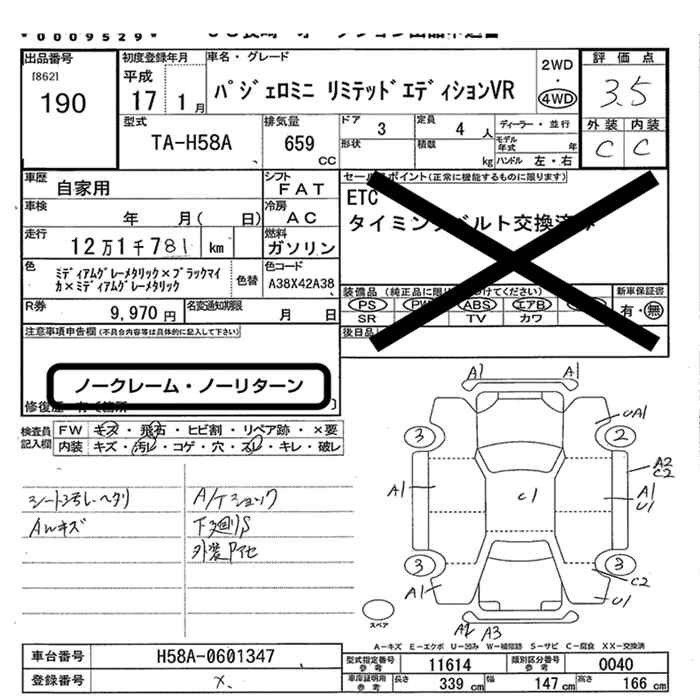 0009529
出品番号
[862]
190
初度登録年月
平成
17 1月
車名・グレード
パジェロミニ リミテッドエディションVR
2WD
・
4WD
評価点
3.5
外装 内装
C C
型式
TA-H58A
排気量
659
CC
ドア
3
定員
4人
ディーラー・並行
形状
積載
kg
モデル年式 年
ハンドル 左・右
車歴
自家用
シフト
FAT
車検
年 月( 日)
冷房
AC
走行
12万1千781 km
燃料
ガソリン
色
ミディアムグレーメタリック×ブラックマイ
カ×ミディアムグレーメタリック
色替
色コード
A38X42A38
R券
9,970円
名変通知期限
月 日
セールスポイント(正常に機能するものに限ります)
ETC
タイミングベルト交換済み
装備品
PS PW ABS エアB
SR TV カワ
新車保証書
有・無
後日品
注意事項申告欄(不具合内容等は具体的に記入して下さい)
ノークレーム・ノーリターン
検査員
記入欄
FW キズ・飛石・ヒビ割・リペア跡・×要
内装 キズ・汚れ・コゲ・穴・スレ・キレ・破レ
シート汚れ・ヘタリ
AWキズ
A/Tショック
下廻りS
外装アセ
A1 A1
UA1
3 2
A2
C2
A1
C1
A1
U1
3 3
A1
C2
U1
A2 A3
スペア
A-キズ E-エクボ U-凹み W-補修跡 S-サビ C-腐食 XX-交換済
車台番号
H58A-0601347
登録番号
×
型式指定番号
参考
11614
類別区分番号
参考
0040
車庫証明用
参考
長さ
339 cm
幅
147 cm
高さ
166 cm